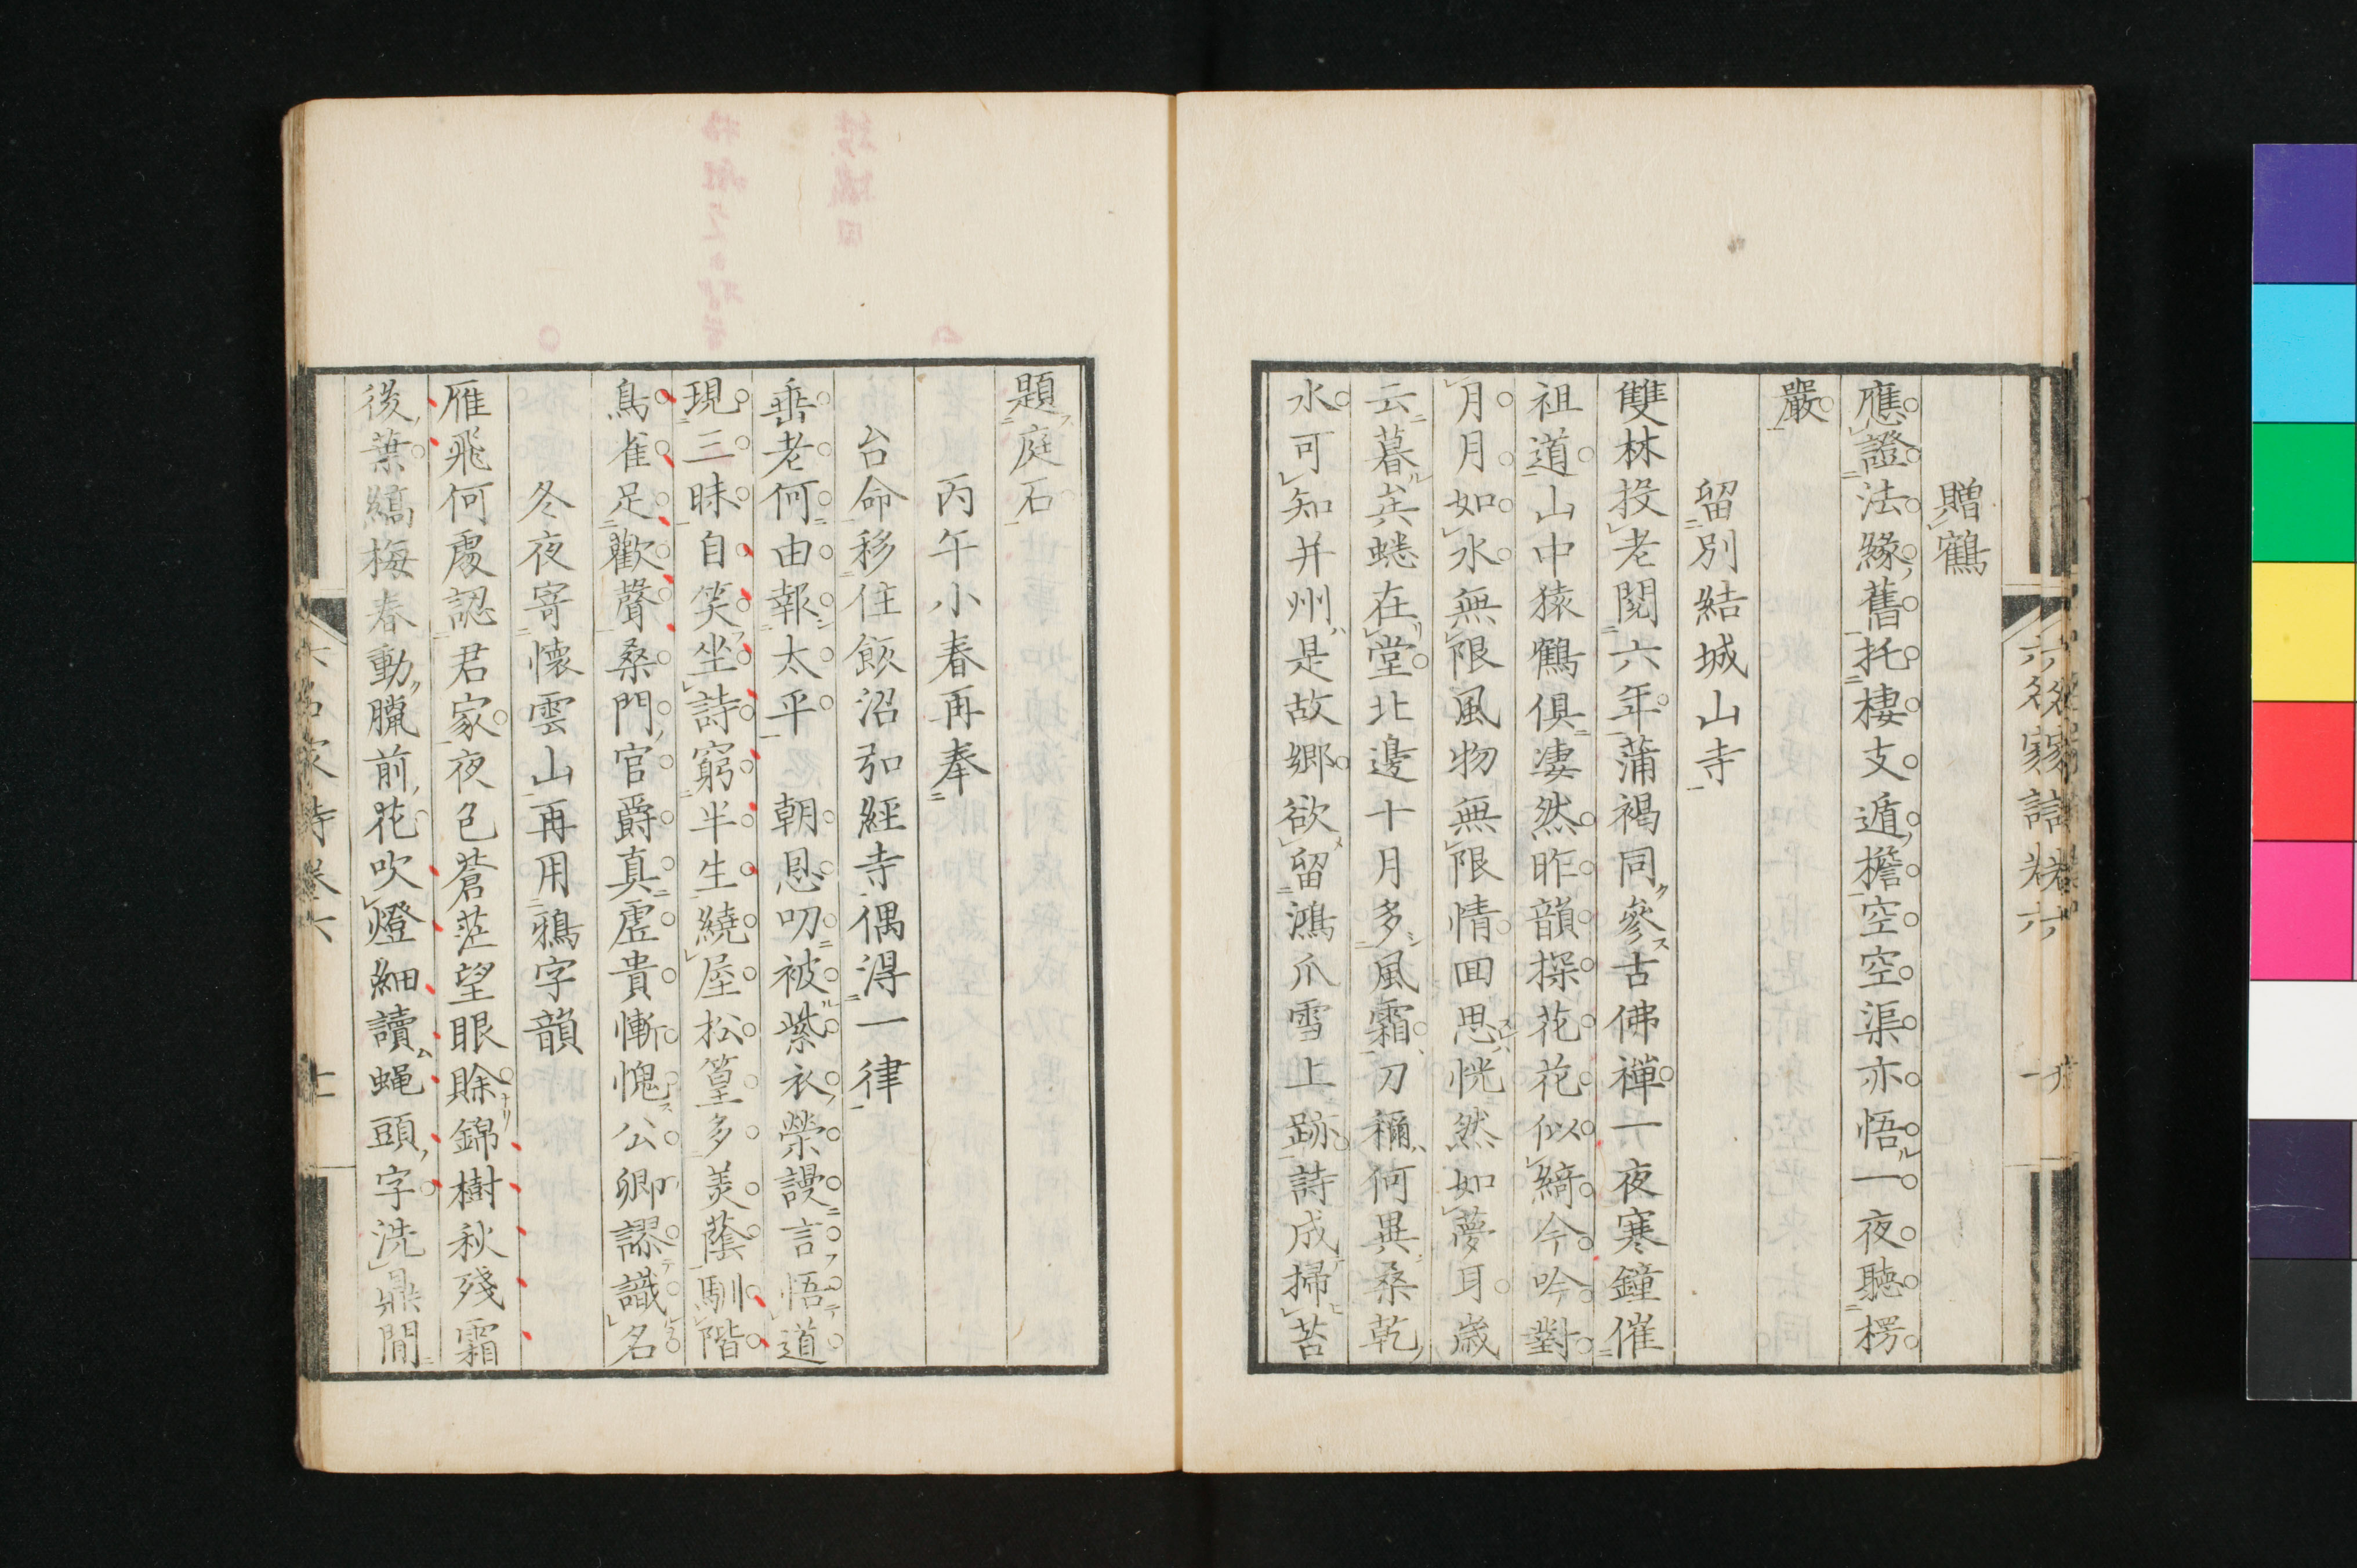 贈鶴
應證法緣舊托棲支遁檐空空渠亦悟一夜聽楞
嚴
留別結城山寺
雙林投老閱六年蒲褐同參古佛禪一夜寒鐘催
祖道山中猿鶴俱凄然昨韻探花花似綺今吟對
月月如水無限風物無限情回思恍然如夢耳歲
云暮矣蟋在堂北邊十月多風霜刀禰何異桑乾
水可知并州是故鄉欲留鴻爪雪上跡詩成掃苔
題庭石
丙午小春再奉
台命移住飯沼弘經寺偶得一律
垂老何由報太平 朝恩叨被紫衣榮謾言悟道
現三昧自笑坐詩窮半生繞屋松篁多美蔭馴階
鳥雀足歡聲桑門官爵真虛貴慚愧公卿謬識名
冬夜寄懷雲山再用鴉字韻
雁飛何處認君家夜色蒼茫望眼賒錦樹秋殘霜
後葉縞梅春動臘前花吹燈細讀蝇頭字洗鼎閒